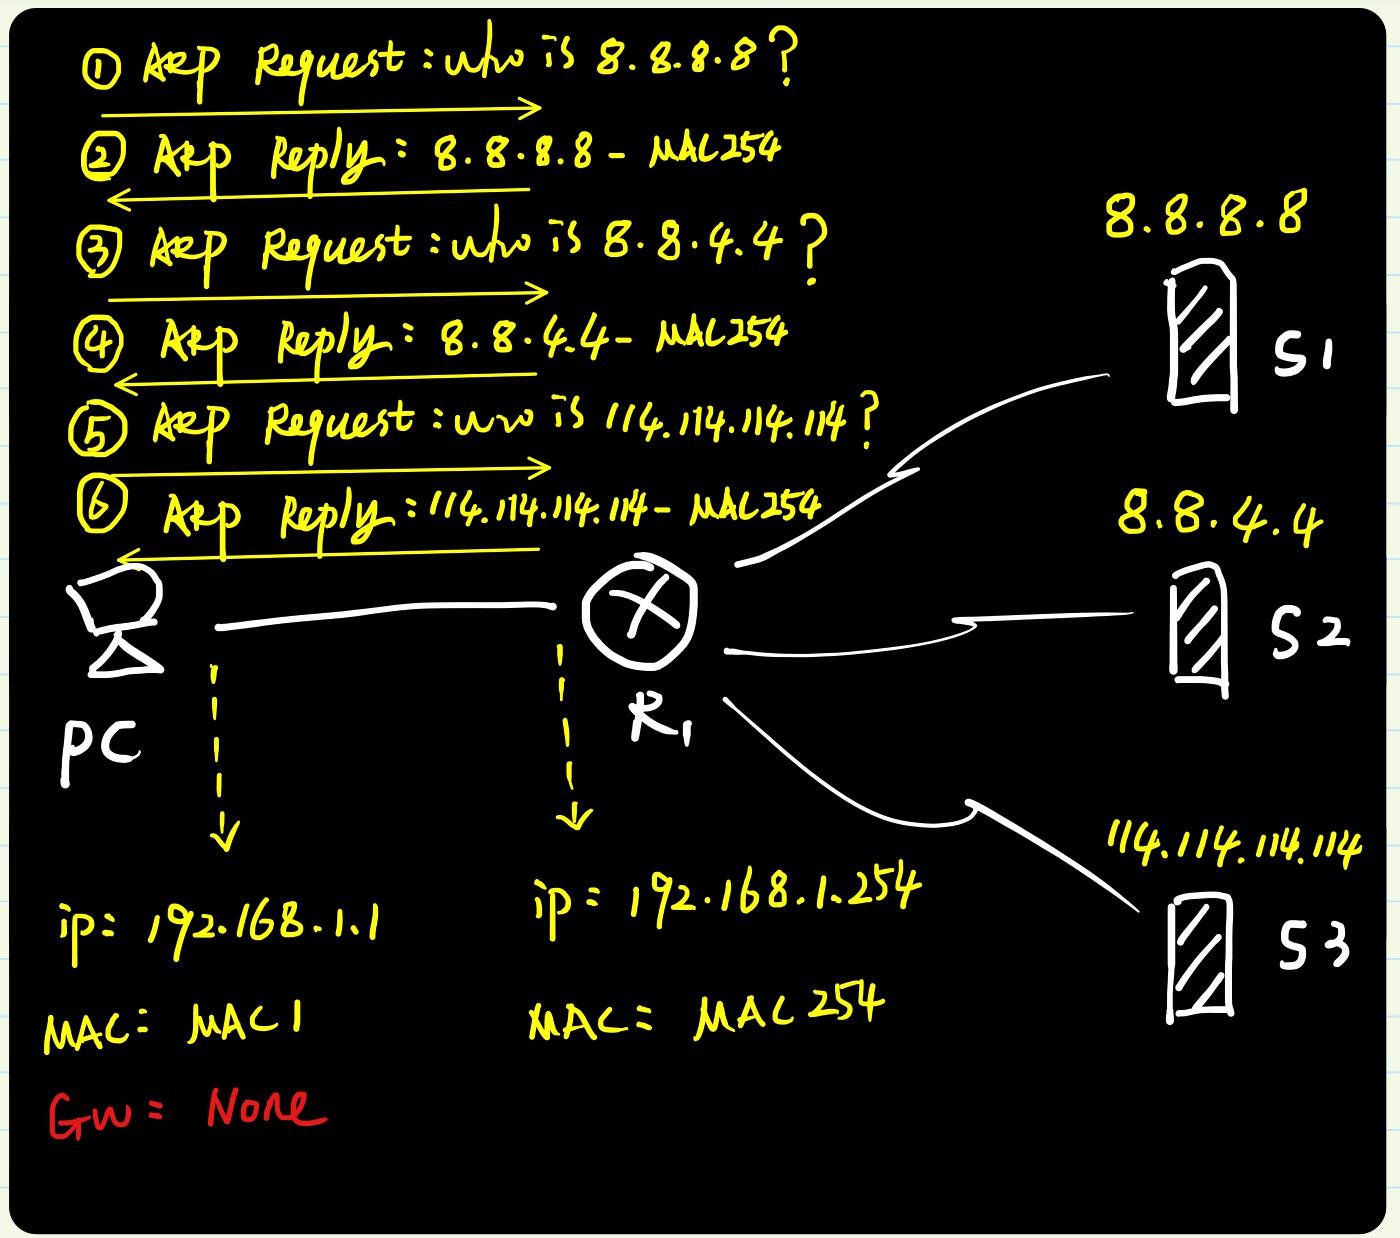 ① ARP Request: who is 8.8.8.8?
② ARP Reply: 8.8.8.8 - MAC254
③ ARP Request: who is 8.8.4.4?
④ ARP Reply: 8.8.4.4 - MAC254
⑤ ARP Request: who is 114.114.114.114?
⑥ ARP Reply: 114.114.114.114 - MAC254
8.8.8.8
S1
8.8.4.4
S2
PC
R1
114.114.114.114
S3
ip= 192.168.1.1
ip= 192.168.1.254
MAC= MAC1
MAC= MAC254
GW= None